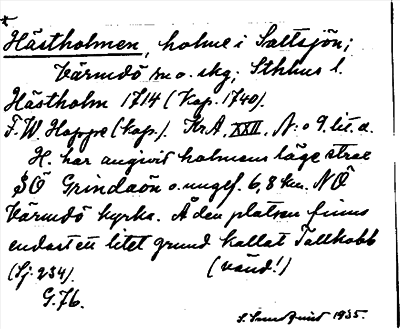 Hästholmen, holme i Saltsjön;
Värmdö sn o. skg; Sthlms l.
Hästholm 1714 (Kop. 1740).
F. W. Hoppe (kop.). KrA, XXII, N:o 9. lit. a.
H. har angivit holmens läge strax
SÖ Grindaön o. ungef. 6,8 km. NÖ
Värmdö kyrka. Å den platsen finns
endast ett litet grund kallat Tallkobb
(Sj: 234). (vänd!)
G. 7b.
1935.